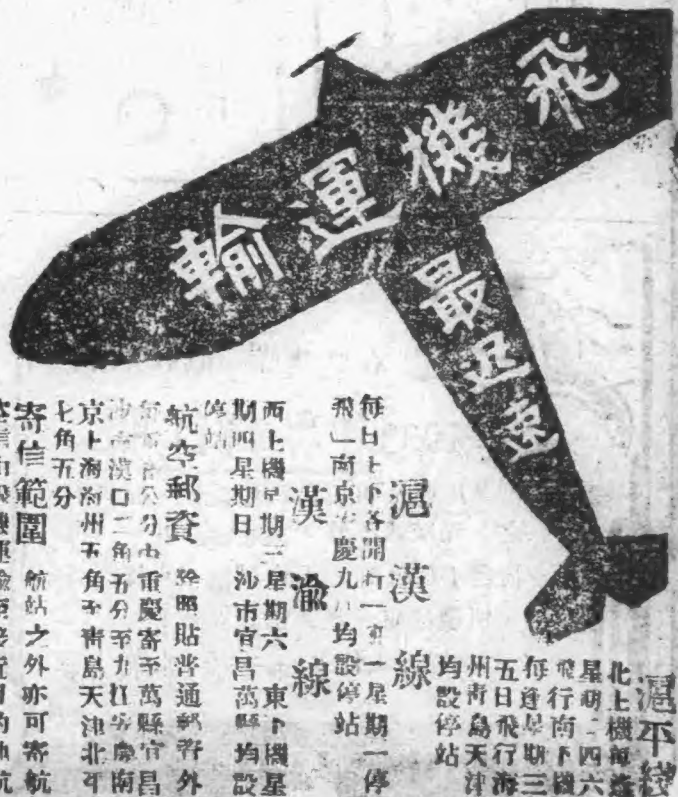 飛機運輸
最迅速
滬平綫
北上機每逢
星期二四六
飛行南下機
每逢星期三
五日飛行海
州青島天津
均設停站
滬漢線
每日上下各開行一次一星期一停
飛」南京安慶九江均設停站
漢渝線
西上機星期三星期六 東下機星
期四星期日 沙市宜昌萬縣均設
停站
航空郵資 除照貼普通郵資外
每公分由重慶寄至萬縣宜昌
沙市漢口二角五分至九江安慶南
京上海海州五角至青島天津北平
七角五分
寄信範圍 航站之外亦可寄航
空信由飛機運輸至接近目的地航